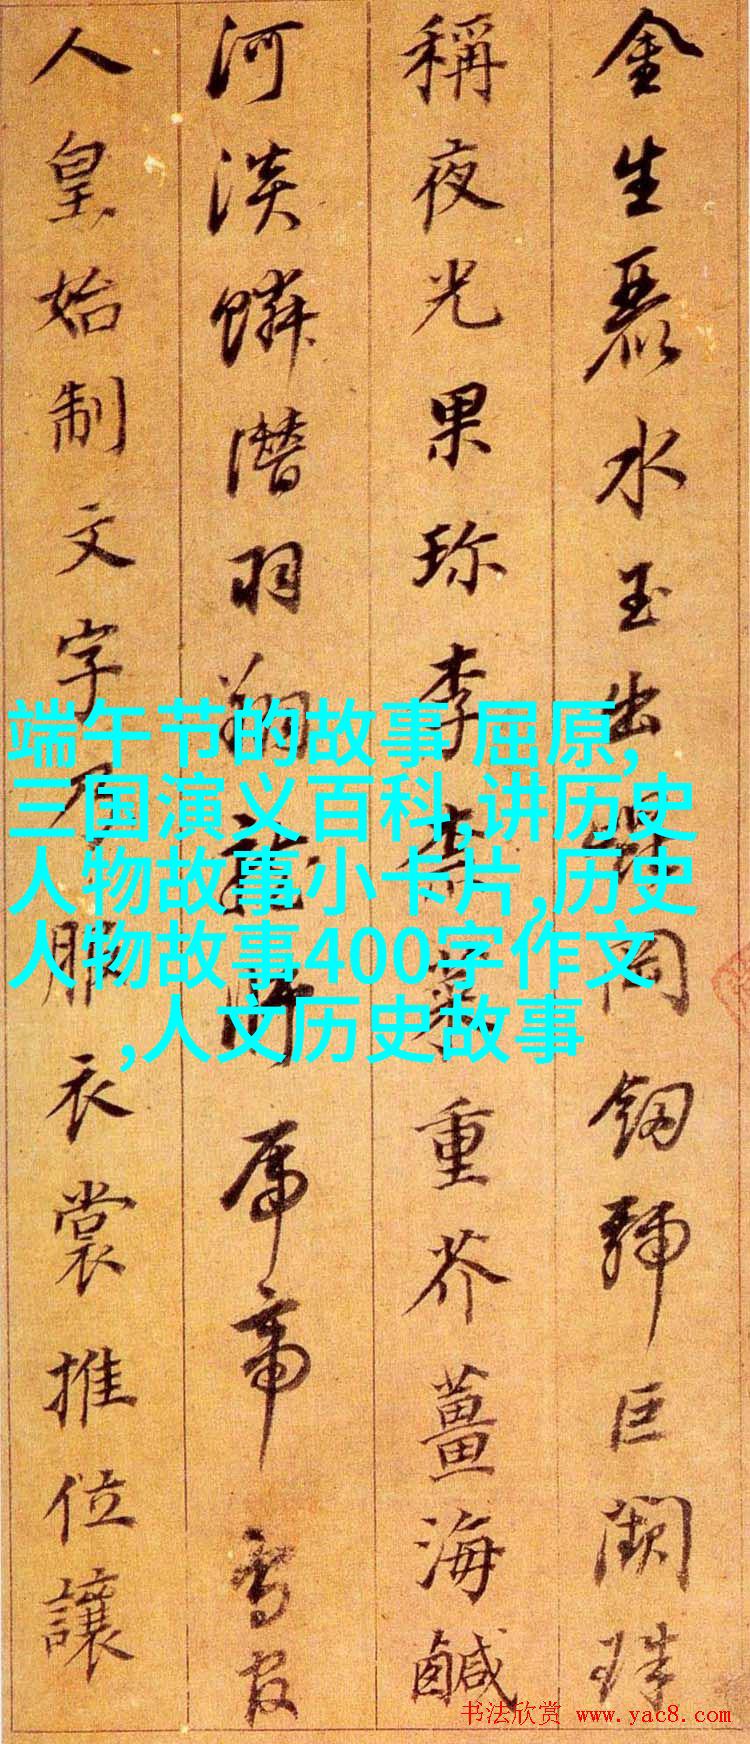 金生麗水玉出岡釼號巨闕珠
稱夜光果珎李柰菜重芥薑海鹹
河淡鱗潛羽翔龍師帝鳥官
人皇始制文字乃服衣裳推位讓
端午节的故事 屈原,
三国演义百科,讲历史
人物故事小卡片,历史
人物故事400字作文
,人文历史故事
书法欣赏 www.yac8.com